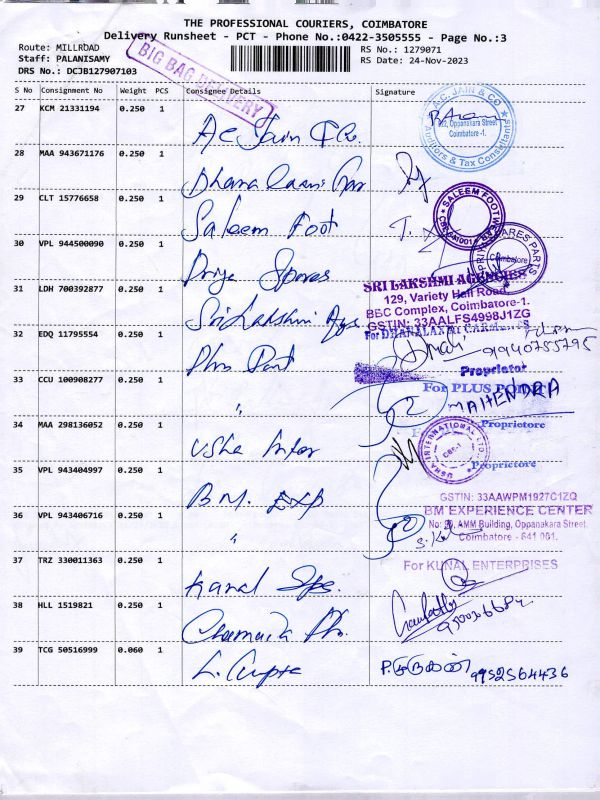 THE PROFESSIONAL COURIERS, COIMBATORE
Delivery Runsheet - PCT - Phone No.:0422-3505555 - Page No.:3
Route: MILLROAD
RS No.: 1279071
Staff: PALANISAMY
RS Date: 24-Nov-2023
DRS No.: DCJB127907103
BIG BAG DELIVERY
S No Consignment No Weight PCS Consignee Details Signature
27 KCM 21331194 0.250 1
AC Jain & Co.
A.C. JAIN & CO
Oppanakara Street
Coimbatore -1.
Auditors & Tax Consultants
28 MAA 943671176 0.250 1
Dhana Laxmi
29 CLT 15776658 0.250 1
Saleem Foot
SALEEM FOOTWEAR
30 VPL 944500090 0.250 1
Priya Spares
PRIYA SPARES PARTS
Coimbatore
31 LDH 700392877 0.250 1
Sri Lakshmi Ags
SRI LAKSHMI AGENCIES
129, Variety Hall Road
BBC Complex, Coimbatore-1.
GSTIN: 33AALFS4998J1ZG
32 EDQ 11795554 0.250 1
Plus Point
For DHANALAXMI
9940755795
Proprietor
33 CCU 100908277 0.250 1
"
For PLUS POINT
MAHENDRA
Proprietore
34 MAA 298136052 0.250 1
Usha Inter
USHA INTERNATIONAL LTD.
CBE-1
Proprietore
35 VPL 943404997 0.250 1
B.M. Exp
GSTIN: 33AAWPM1927C1ZQ
BM EXPERIENCE CENTER
36 VPL 943406716 0.250 1
"
AMM Building, Oppanakara Street,
Coimbatore - 641 001.
37 TRZ 330011363 0.250 1
For KUNAL ENTERPRISES
38 HLL 1519821 0.250 1
39 TCG 50516999 0.060 1
L. Gupta
9952564436